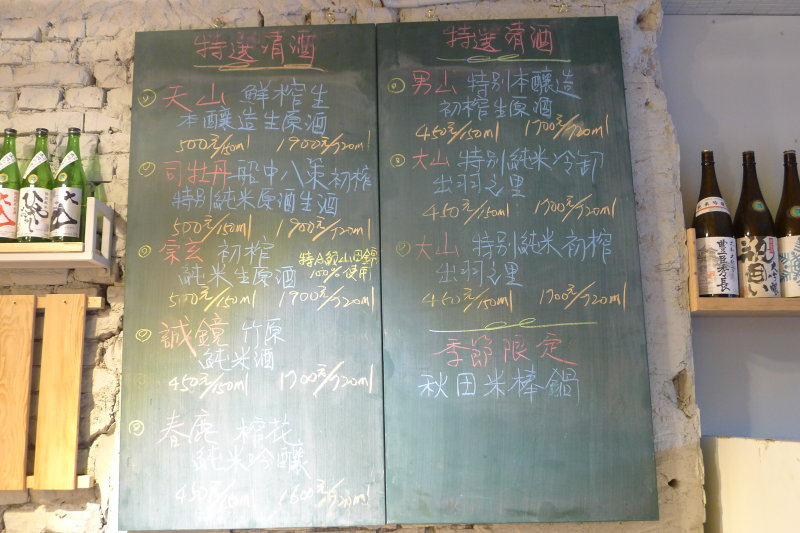 特選清酒
天山 鮮榨生
本釀造生原酒
500元/150ml 1900元/720ml
司牡丹 船中八策初榨
特別純米原酒生酒
500元/150ml 1900元/720ml
宗玄 初榨
特A級山田錦
純米生原酒 100%使用
500元/150ml 1900元/720ml
誠鏡 竹原
純米酒
450元/150ml 1700元/720ml
春鹿 榨花
純米吟釀
450元/150ml 1600元/720ml
特選清酒
男山 特別本釀造
初榨生原酒
450元/150ml 1700元/720ml
大山 特別純米冷卸
出羽之里
450元/150ml 1700元/720ml
大山 特別純米初榨
出羽之里
450元/150ml 1700元/720ml
季節限定
秋田米棒鍋